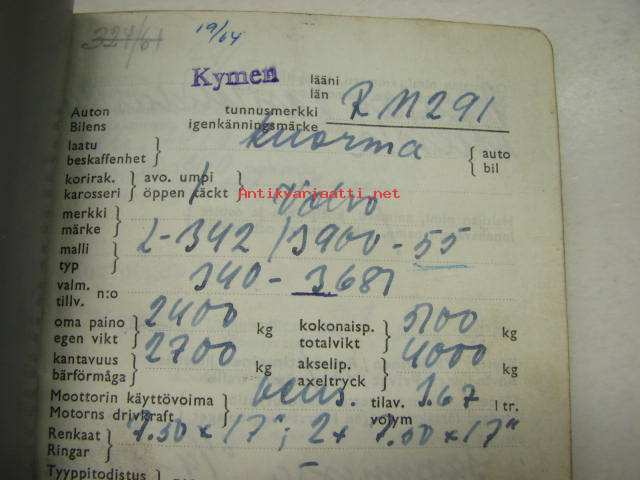 327/61 19/64
Kymen lääni
län
Auton tunnusmerkki RM291
Bilens igenkänningsmärke
laatu kuorma auto
beskaffenhet bil
korirak. avo. umpi
karosseri öppen täckt
Antikvariaatti.net
merkki Volvo
märke
malli L-342/3900-55
typ
valm. 340-3681
tillv. n:o
oma paino 2400 kg kokonaisp. 5100 kg
egen vikt totalvikt
kantavuus 2700 kg akselip. 4000 kg
bärförmåga axeltryck
Moottorin käyttövoima bens. tilav. 3.67 l tr.
Motorns drivkraft volym
Renkaat 7.50 x 17"; 2x 7.50 x 17"
Ringar
Tyyppitodistus